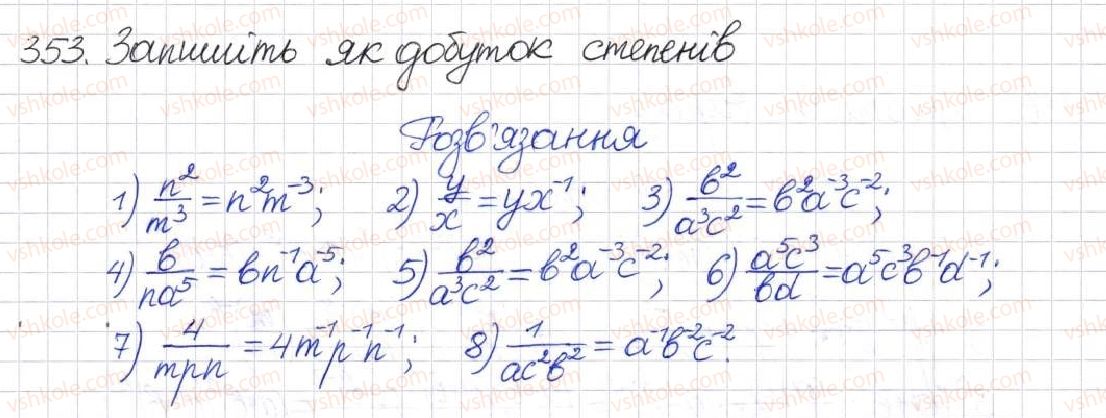 353. Запишіть як добуток степенів
Розв'язання
1) n²/m³ = n²m⁻³; 2) y/x = yx⁻¹; 3) b²/a³c² = b²a⁻³c⁻²;
4) b/na⁵ = bn⁻¹a⁻⁵; 5) b²/a³c² = b²a⁻³c⁻²; 6) a⁵c³/bd = a⁵c³b⁻¹d⁻¹;
7) 4/mpn = 4m⁻¹p⁻¹n⁻¹; 8) 1/ac²b² = a⁻¹b⁻²c⁻².